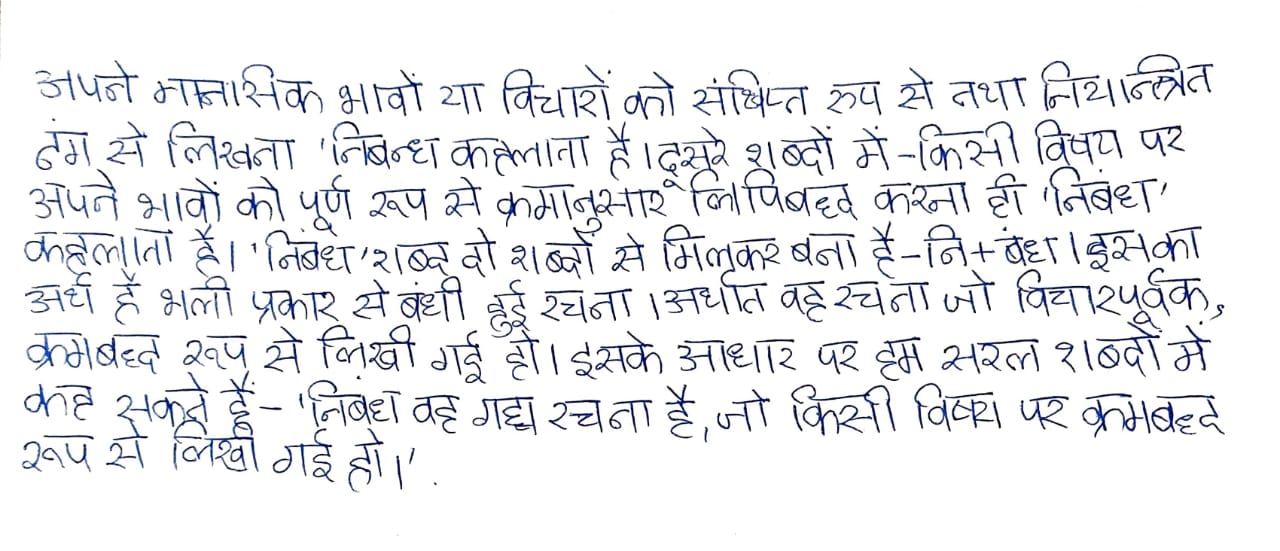 अपने मानसिक भावों या विचारों को संक्षिप्त रुप से तथा नियान्त्रित
ढंग से लिखना 'निबन्ध कहलाता है। दूसरे शब्दों में-किसी विषय पर
अपने भावों को पूर्ण रूप से क्रमानुसार लिपिबद्ध करना ही 'निबंध'
कहलाता है। 'निबंध' शब्द दो शब्दों से मिलकर बना है-नि+बंध। इसका
अर्थ है भली प्रकार से बंधी हुई रचना। अर्थात वह रचना जो विचारपूर्वक,
क्रमबद्ध रूप से लिखी गई हो। इसके आधार पर हम सरल शब्दों में
कह सकते हैं- 'निबंध वह गद्य रचना है, जो किसी विषय पर क्रमबद्ध
रूप से लिखी गई हो।'.